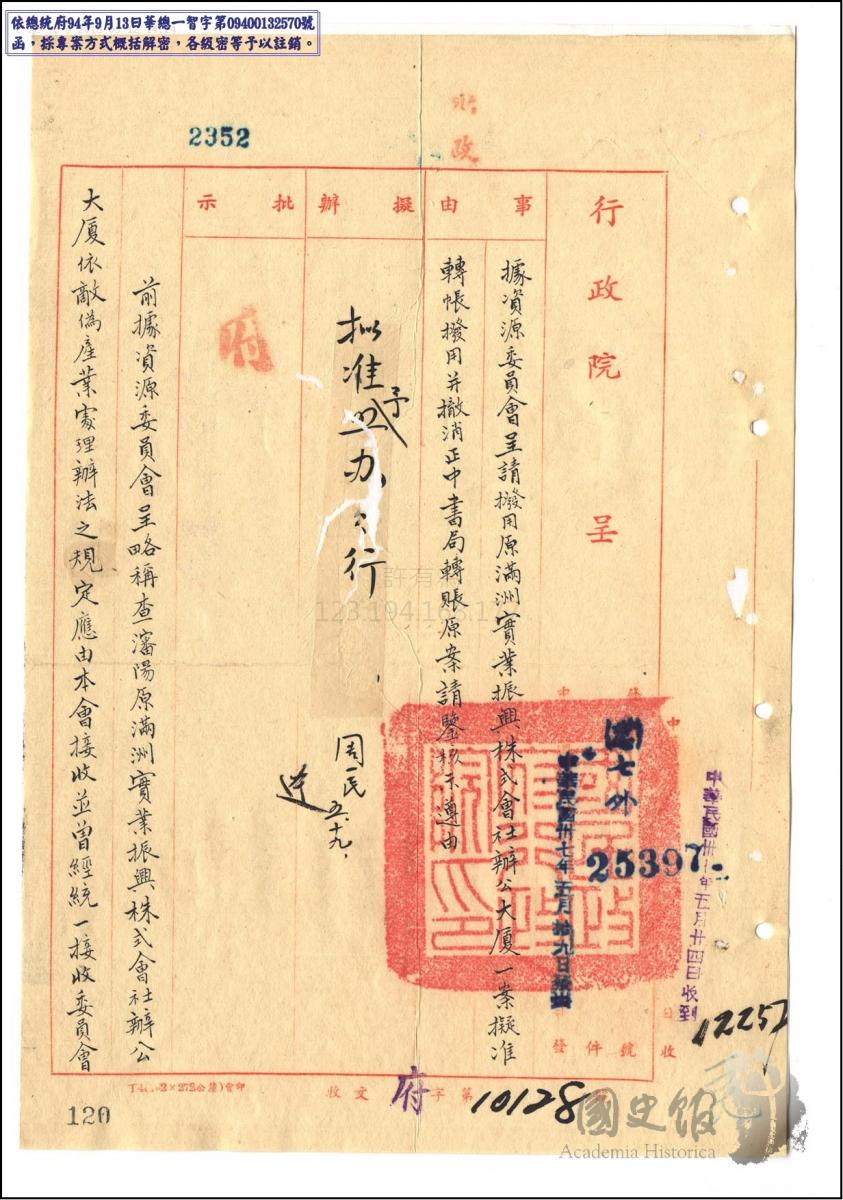 依總統府94年9月13日華總一智字第09400132570號
函，採專案方式概括解密，各級密等予以註銷。
財政
2352
行政院 呈
事由
擬辦
批示
據資源委員會呈請撥用原滿洲實業振興株式會社辦公大廈一案擬准
轉帳撥用并撤消正中書局轉賬原案請鑒核示遵由
拟准予照办
行
周民
五.九.
府
前據資源委員會呈略稱查瀋陽原滿洲實業振興株式會社辦公
大廈依敵偽產業處理辦法之規定應由本會接收並曾經統一接收委員會
七外
25397
中華民國卅七年五月拾九日
五月廿四日收到
12252
收
號
件
發
收文府字第10128
120
許有
123.194.16
國史館
Academia Historica